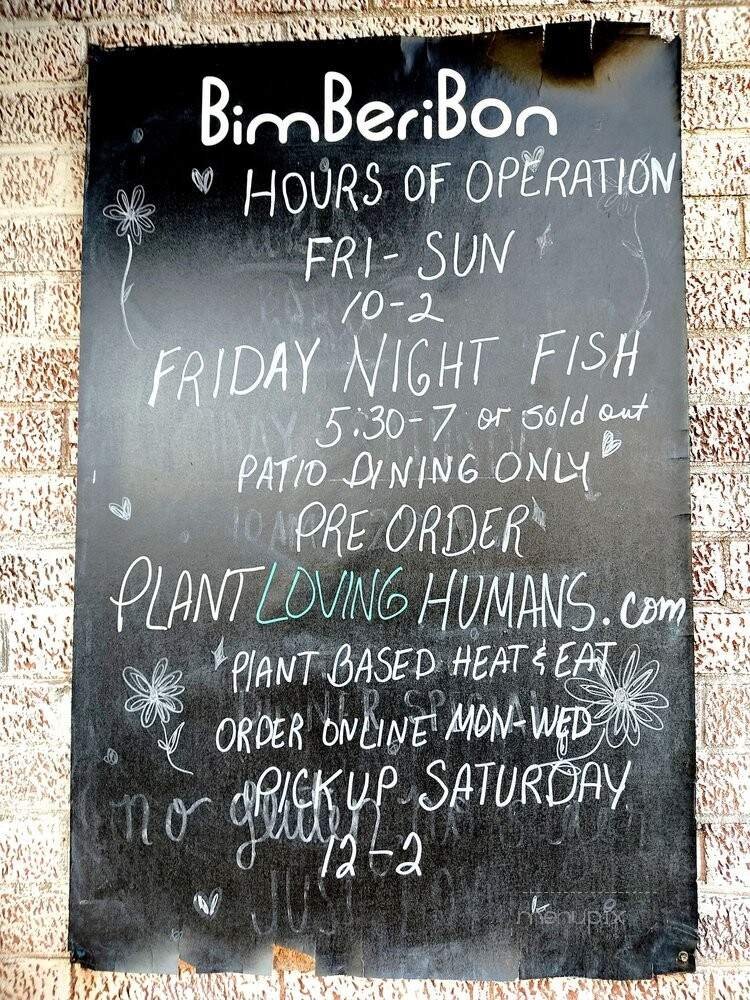 BimBeriBon
HOURS OF OPERATION
FRI- SUN
10-2
FRIDAY NIGHT FISH
5:30-7 or sold out
PATIO DINING ONLY
PRE ORDER
PLANTLOVINGHUMANS.com
PLANT BASED HEAT & EAT
ORDER ONLINE MON-WED
PICKUP SATURDAY
no gluten
12-2
JUST
menupix